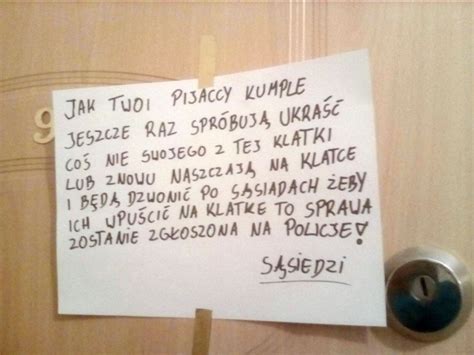 9
JAK TWOI PIJACCY KUMPLE
JESZCZE RAZ SPRÓBUJĄ UKRAŚĆ
COŚ NIE SWOJEGO Z TEJ KLATKI
LUB ZNOWU NASZCZAJĄ NA KLATCE
I BĘDĄ DZWONIĆ PO SĄSIADACH ŻEBY
ICH WPUŚCIĆ NA KLATKE TO SPRAWA
ZOSTANIE ZGŁOSZONA NA POLICJE!
SĄSIEDZI